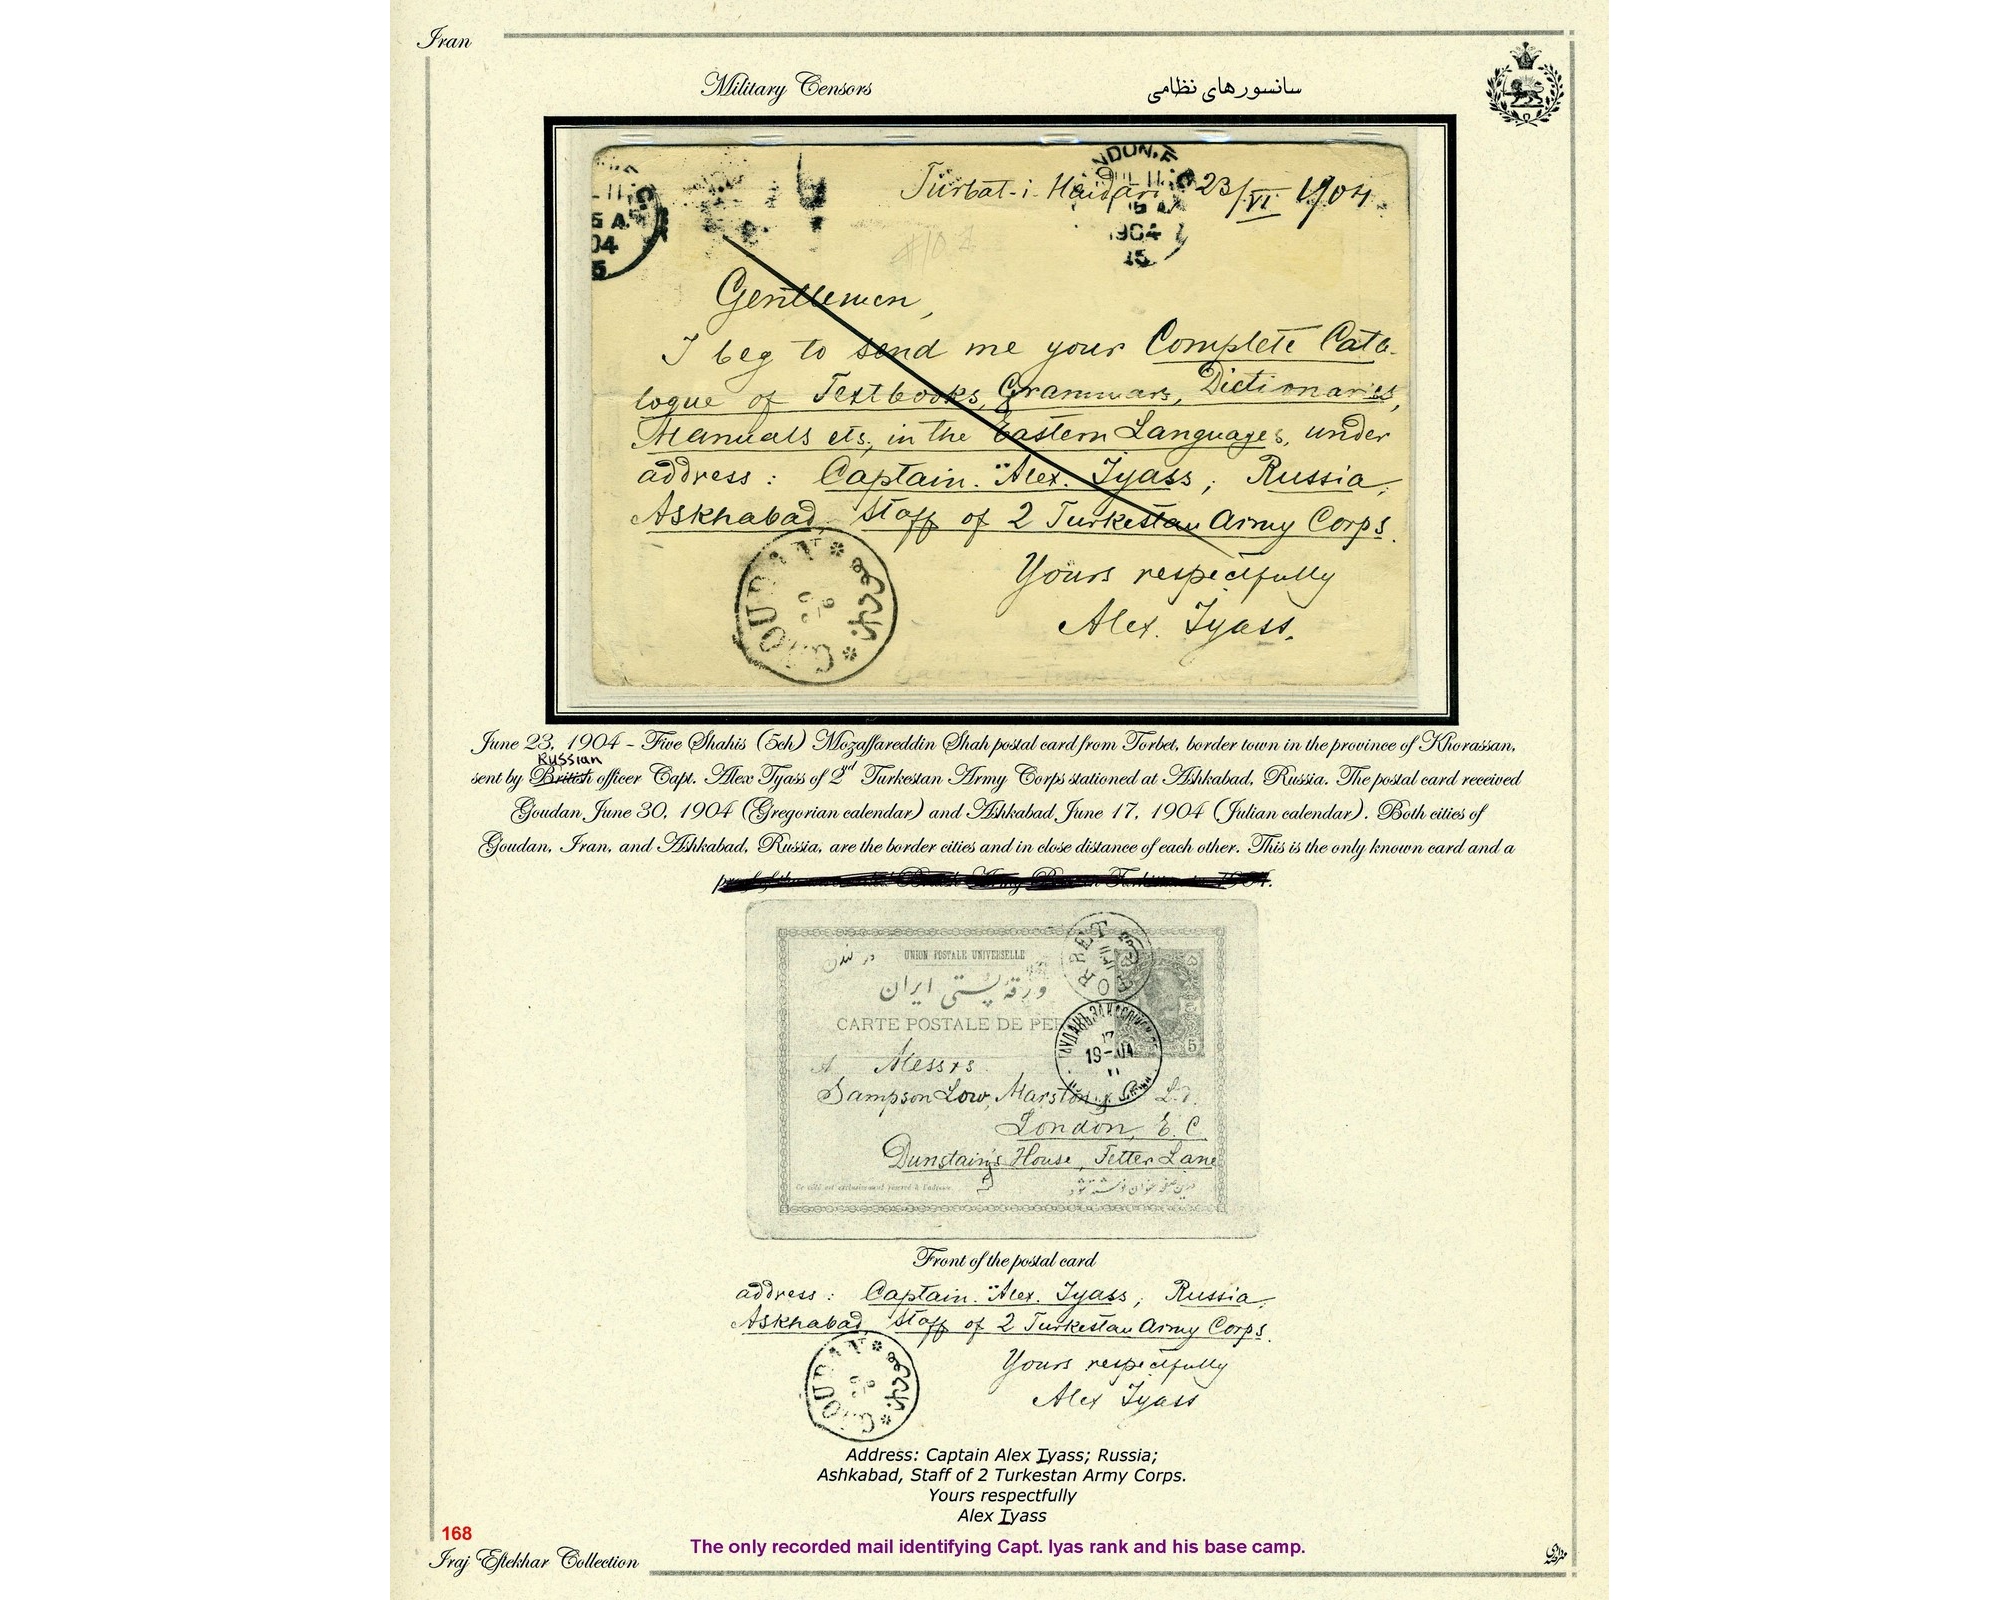 Iran
Military Censors
سانسورهای نظامی
Turbat-i-Haidari 23/VI 1904
LONDON.E
1904
15
Gentlemen,
I beg to send me your Complete Cata-
logue of Textbooks, Grammars, Dictionaries,
Manuals ets, in the Eastern Languages, under
address: Captain. Alex. Iyass; Russia,
Askhabad, Staff of 2 Turkestan Army Corps.
Yours respectfully
Alex. Iyass.
GOUDAN
June 23, 1904 - Five Shahis (5ch) Mozaffareddin Shah postal card from Torbet, border town in the province of Khorassan,
Russian
sent by British officer Capt. Alex Tyass of 2nd Turkestan Army Corps stationed at Ashkabad, Russia. The postal card received
Goudan June 30, 1904 (Gregorian calendar) and Ashkabad June 17, 1904 (Julian calendar). Both cities of
Goudan, Iran, and Ashkabad, Russia, are the border cities and in close distance of each other. This is the only known card and a
TORBET
در لندن
UNION POSTALE UNIVERSELLE
ورقه پستی ایران
CARTE POSTALE DE PER
19-04
5
A Messrs
Sampson Low, Marston Ld.
London, E. C.
Dunstain's House, Fetter Lane
Ce côté est exclusivement réservé à l'adresse
Front of the postal card
address: Captain. Alex. Iyass; Russia,
Askhabad, Staff of 2 Turkestan Army Corps.
GOUDAN
Yours respectfully
Alex Iyass
Address: Captain Alex Iyass; Russia;
Ashkabad, Staff of 2 Turkestan Army Corps.
Yours respectfully
Alex Iyass
168
The only recorded mail identifying Capt. Iyas rank and his base camp.
Iraj Eftekhar Collection